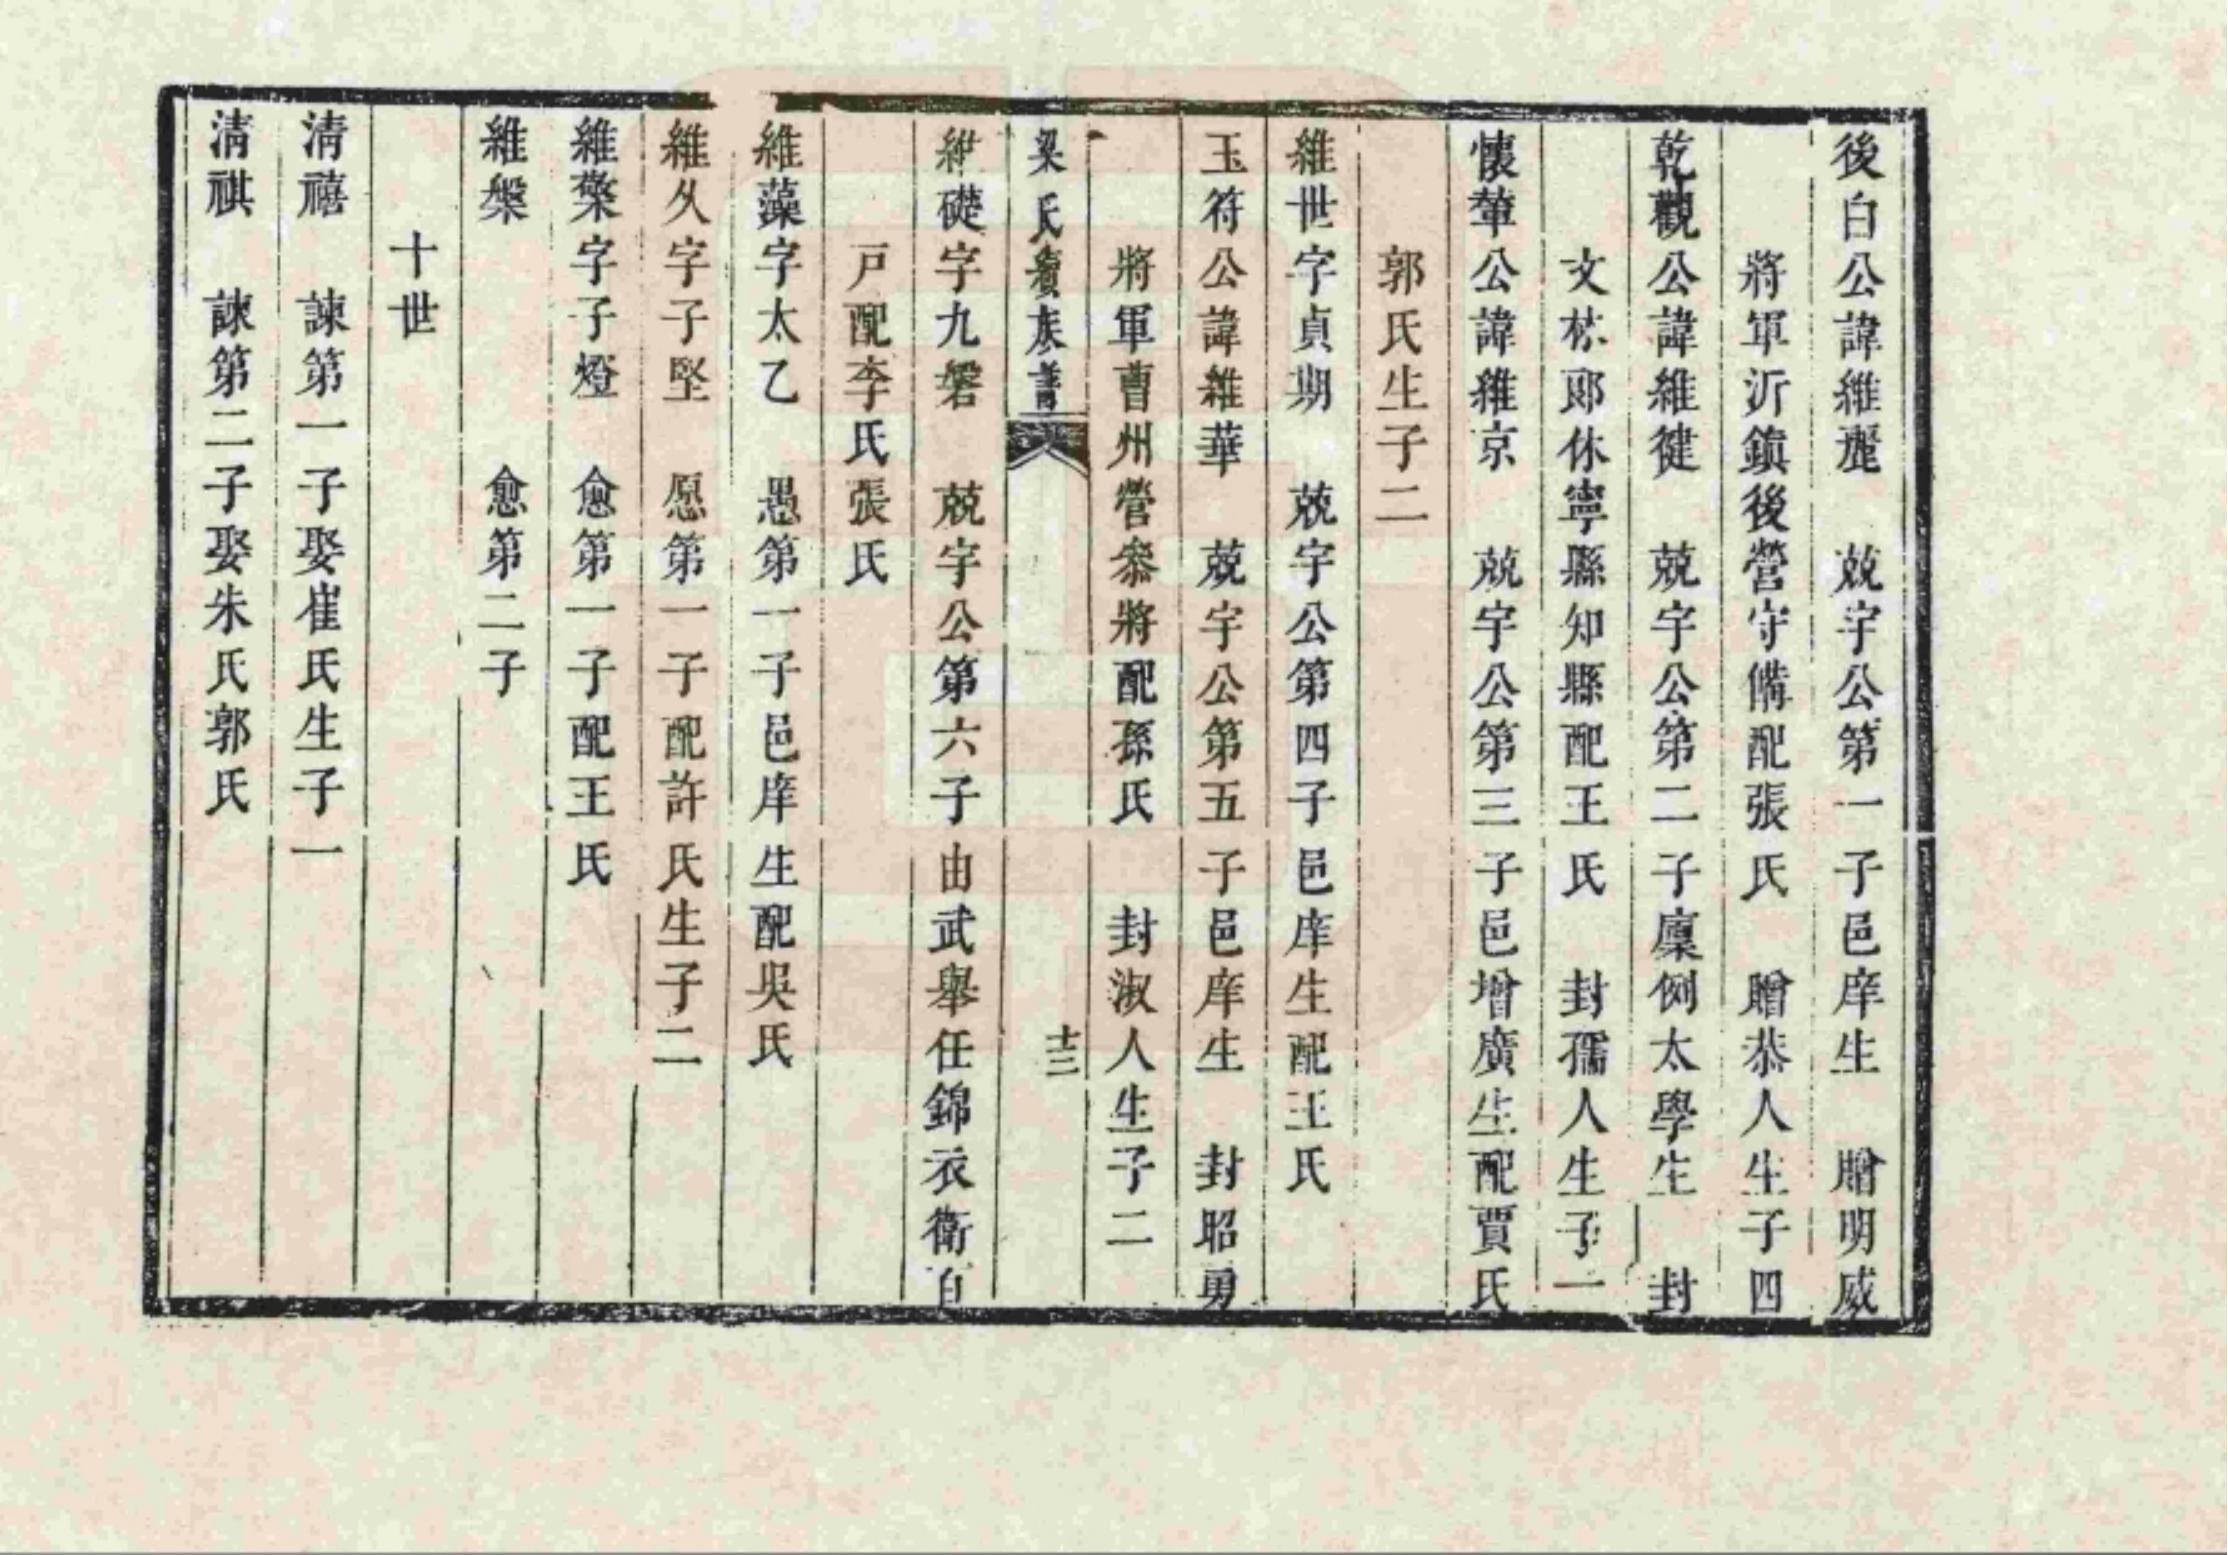 後白公諱維麗　兢宇公第一子邑庠生　贈明威
將軍沂鎮後營守備配張氏　贈恭人生子四
乾觀公諱維健　兢宇公第二子廩例太學生　封
文林郎休寧縣知縣配王氏　封孺人生子一
懷輦公諱維京　兢宇公第三子邑增廣生配賈氏
郭氏生子二
維世字貞期　兢宇公第四子邑庠生配王氏
玉符公諱維華　兢宇公第五子邑庠生　封昭勇
將軍曹州營叅將配孫氏　封淑人生子二
梁氏續族書　十三
維礎字九磐　兢宇公第六子由武舉任錦衣衛百
戸配李氏張氏
維藻字太乙　愚第一子邑庠生配吳氏
維久字子堅　愿第一子配許氏生子二
維檠字子燈　愈第一子配王氏
維槃　愈第二子
十世
清禧　諫第一子娶崔氏生子一
清祺　諫第二子娶朱氏郭氏